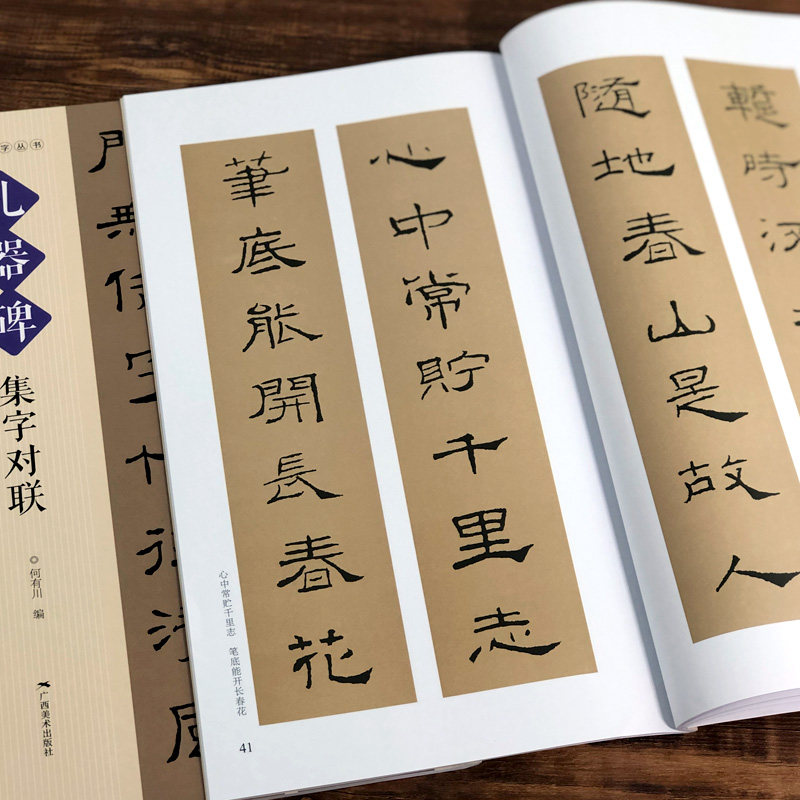 字丛书
器碑
集字对联
何有川 编
广西美术出版社
心中常貯千里志
筆底能開長春花
心中常贮千里志 笔底能开长春花
41
時
隨地春山是故人